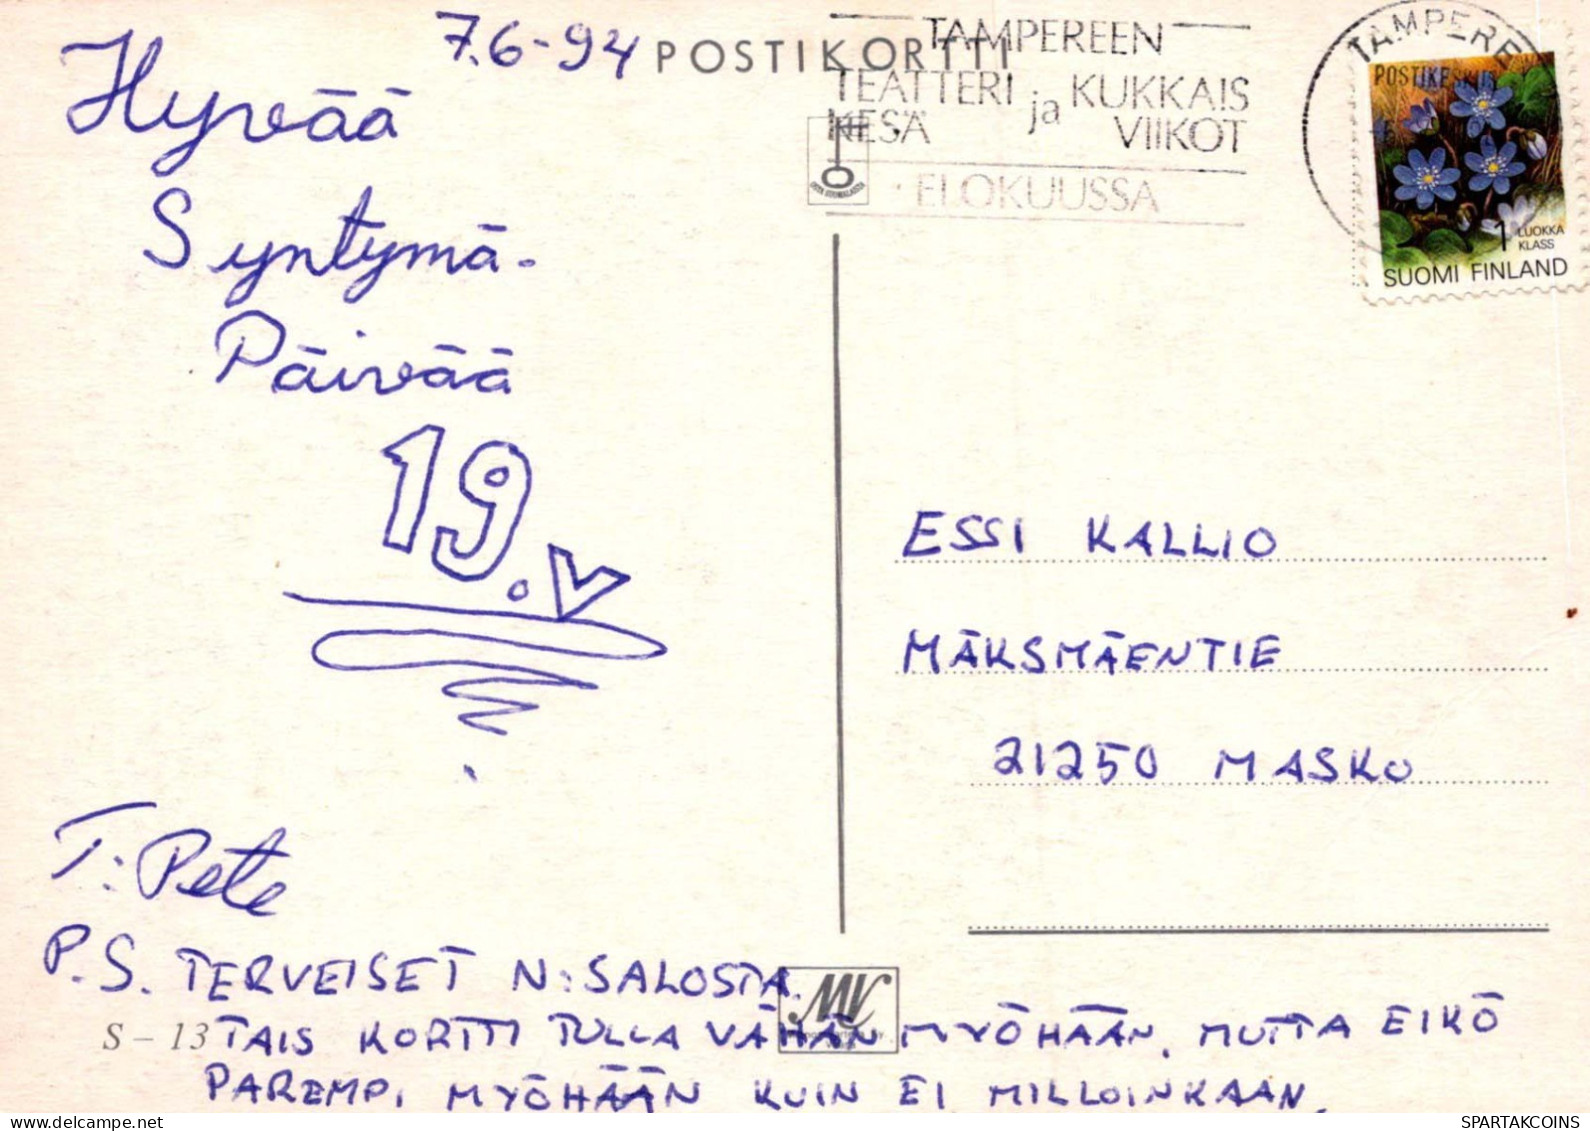 7.6-94
POSTIKORTTI
TAMPEREEN
TEATTERI ja KUKKAIS
KESÄ VIIKOT
ELOKUUSSA
TAMPERE
POSTIKESKUS
1 LUOKKA
KLASS
SUOMI FINLAND
Hyvää
Syntymä-
Päivää
19.v
ESSI KALLIO
MÄKSMÄENTIE
21250 MASKU
T: Pete
P.S. TERVEISET N:SALOSTA.
MK
S – 13
TAIS KORTTI TULLA VÄHÄN MYÖHÄÄN, MUTTA EIKÖ
PAREMPI MYÖHÄÄN KUIN EI MILLOINKAAN.
SPARTAKCOINS